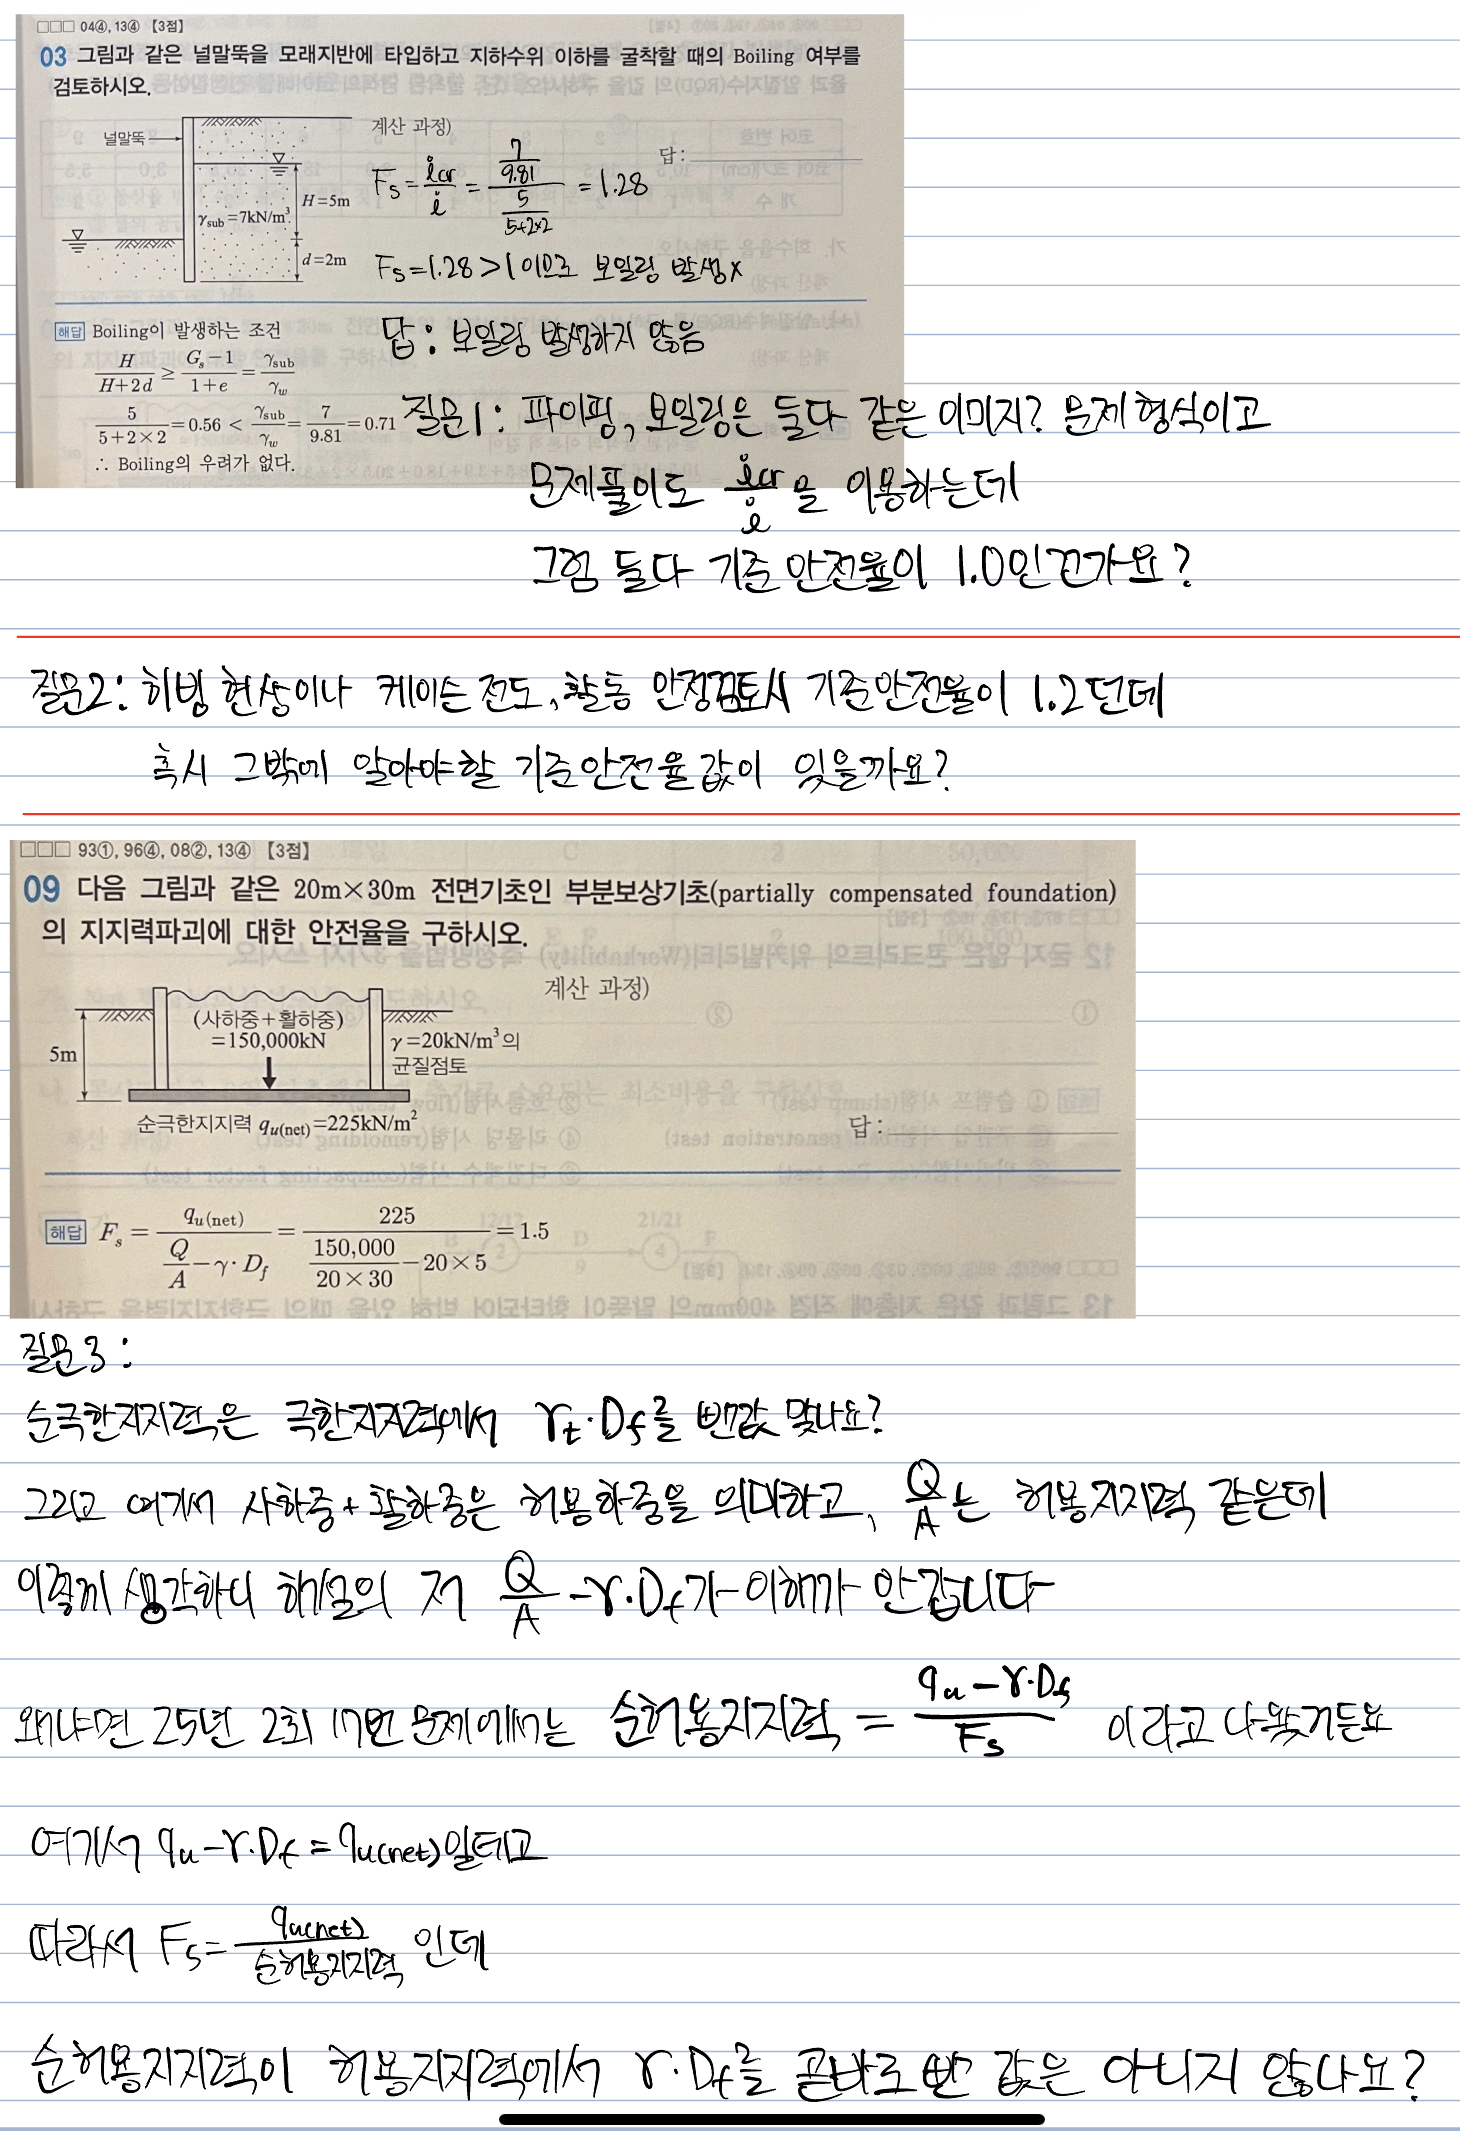 □□□ 04④, 13④ 【3점】
03 그림과 같은 널말뚝을 모래지반에 타입하고 지하수위 이하를 굴착할 때의 Boiling 여부를
검토하시오.
널말뚝
H=5m
γsub=7kN/m³
d=2m
계산 과정)
답:
Fs = icr/i = (7/9.81)/(5/(5+2×2)) = 1.28
Fs=1.28>1 이므로 보일링 발생x
답: 보일링 발생하지 않음
해답 Boiling이 발생하는 조건
H/(H+2d) ≥ (Gs-1)/(1+e) = γsub/γw
5/(5+2×2) =0.56 < γsub/γw = 7/9.81 =0.71
∴ Boiling의 우려가 없다.
질문1: 파이핑, 보일링은 둘다 같은 이미지? 문제 형식이고
문제풀이도 icr/i 을 이용하는데
그럼 둘다 기준 안전율이 1.0인건가요?
질문2: 히빙 현상이나 케이슨 전도, 활동 안정검토시 기준안전율이 1.2던데
혹시 그밖에 알아야할 기준안전율값이 있을까요?
□□□ 93①, 96④, 08②, 13④ 【3점】
09 다음 그림과 같은 20m×30m 전면기초인 부분보상기초(partially compensated foundation)
의 지지력파괴에 대한 안전율을 구하시오.
계산 과정)
(사하중+활하중)
=150,000kN
5m
γ=20kN/m³의
균질점토
순극한지지력 qu(net)=225kN/m²
답:
해답 Fs = qu(net)/(Q/A-γ·Df) = 225/(150,000/(20×30)-20×5) =1.5
질문3:
순극한지지력은 극한지지력에서 γt·Df를 뺀값 맞나요?
그리고 여기서 사하중+활하중은 허용하중을 의미하고, Q/A는 허용지지력 같은데
이렇게 생각하니 해설의 저 Q/A-γ·Df가 이해가 안갑니다
왜냐면 25년 2회 17번 문제에서는 순허용지지력 = (qu-γ·Df)/Fs 이라고 나왔거든요
여기서 qu-γ·Df=qu(net)일테고
따라서 Fs=qu(net)/순허용지지력 인데
순허용지지력이 허용지지력에서 γ·Df를 곧바로 뺀 값은 아니지 않나요?